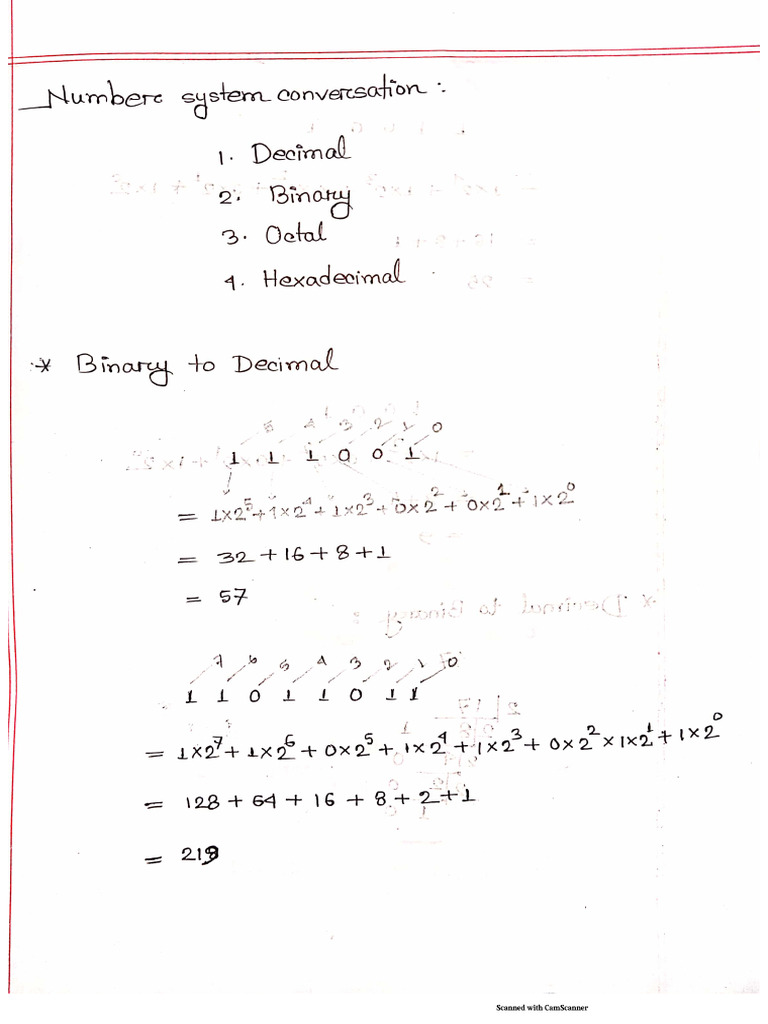 Number system conversation :
1. Decimal
2. Binary
3. Octal
4. Hexadecimal
* Binary to Decimal
5 4 3 2 1 0
1 1 1 0 0 1
= 1×2⁵+1×2⁴+1×2³+0×2²+0×2¹+1×2⁰
= 32+16+8+1
= 57
7 6 5 4 3 2 1 0
1 1 0 1 1 0 1 1
= 1×2⁷+1×2⁶+0×2⁵+1×2⁴+1×2³+0×2²×1×2¹+1×2⁰
= 128+64+16+8+2+1
= 219
Scanned with CamScanner